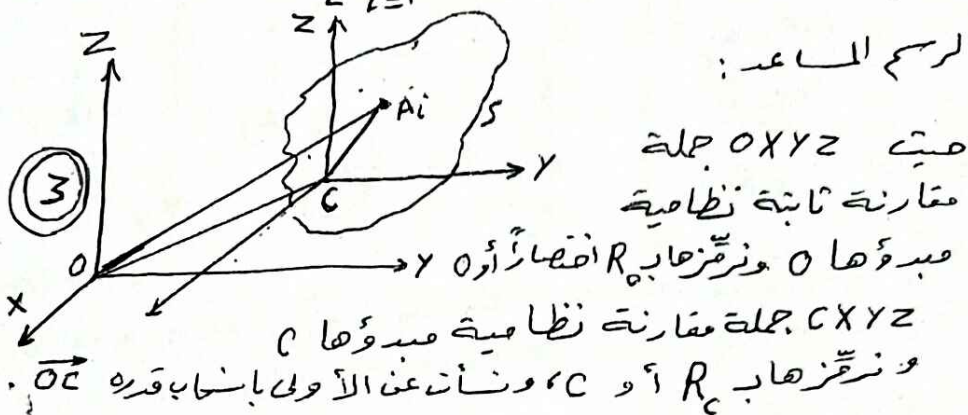 لرسم المساعد:
Z
Z
Ai
S
Y
C
3
O
Y
X
حيث OXYZ جملة
مقارنة ثابتة نظامية
مبدؤها O ونرمّزها بـ R₀ اختصاراً أو O
CXYZ جملة مقارنة نظامية مبدؤها C
ونرمّزها بـ R_C أو C، ونشأت عن الأولى بانسحاب قدره OC→.